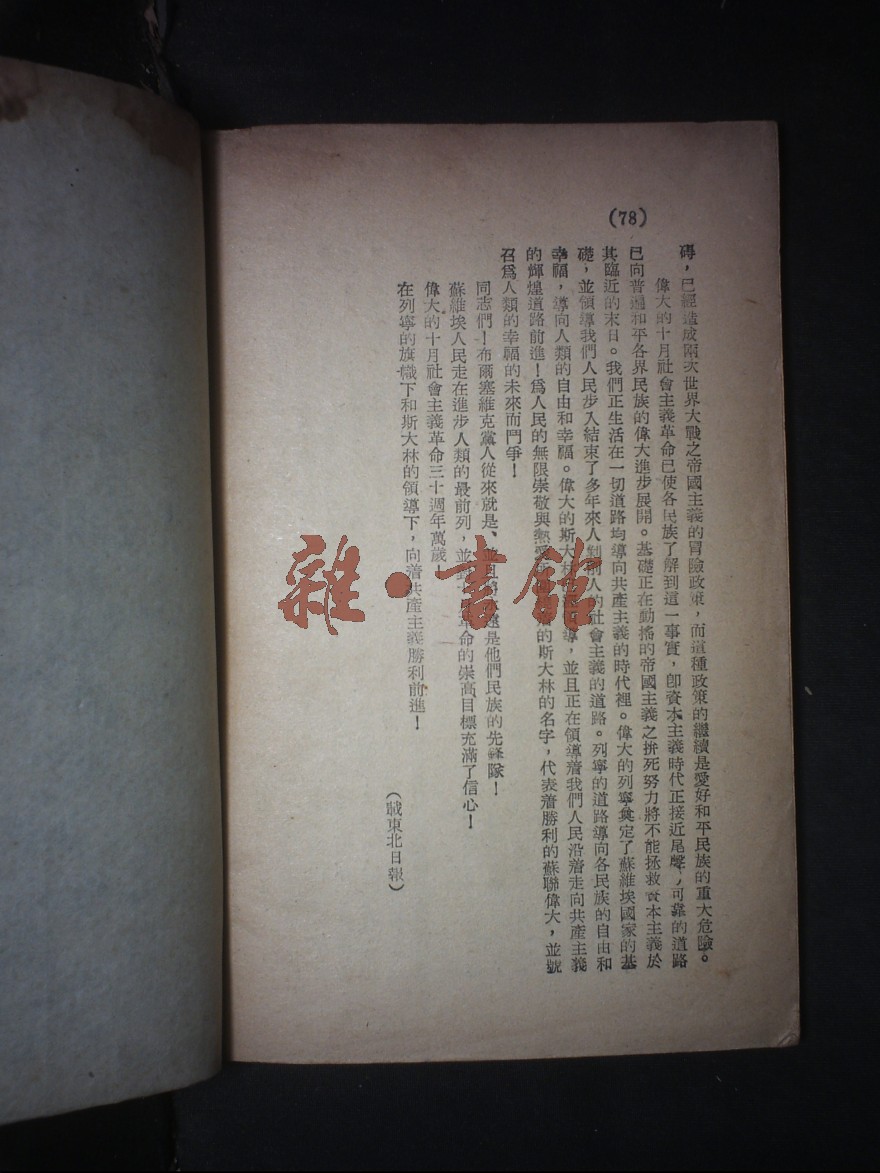 (78)
碍，已經造成兩次世界大戰之帝國主義的冒險政策，而這種政策的繼續是愛好和平民族的重大危險。
偉大的十月社會主義革命已使各民族了解到這一事實，卽資本主義時代正接近尾聲，可靠的道路
已向普遍和平各界民族的偉大進步展開。基礎正在動搖的帝國主義之拚死努力將不能拯救資本主義於
其臨近的末日。我們正生活在一切道路均導向共產主義的時代裡。偉大的列寧奠定了蘇維埃國家的基
礎，並領導我們人民步入結束了多年來人剝削人的社會主義的道路。列寧的道路導向各民族的自由和
幸福，導向人類的自由和幸福。偉大的斯大林領導，並且正在領導着我們人民沿着走向共產主義
的輝煌道路前進！爲人民的無限崇敬與熱愛的斯大林的名字，代表着勝利的蘇聯偉大，並號
召爲人類的幸福的未來而鬥爭！
同志們！布爾塞維克黨人從來就是、並且將永遠是他們民族的先鋒隊！
蘇維埃人民走在進步人類的最前列，並對革命的崇高目標充滿了信心！
偉大的十月社會主義革命三十週年萬歲！
在列寧的旗幟下和斯大林的領導下，向着共產主義勝利前進！
（載東北日報）
雜·書館